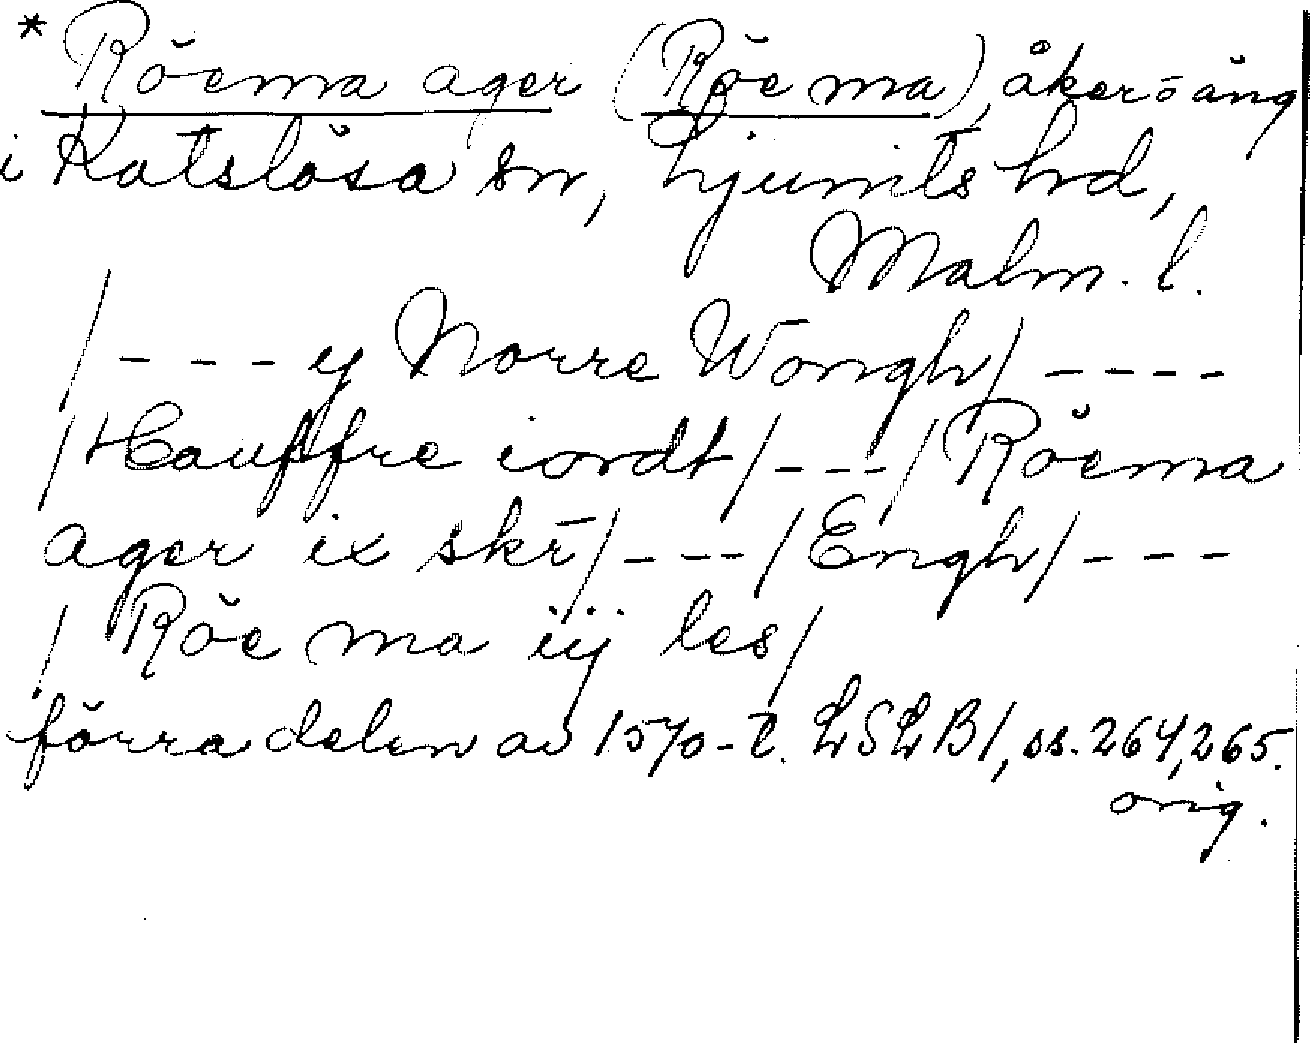 * Röema ager (Röe ma), åker o äng
i Katslösa sn, Ljunits hd,
Malm. l.
/ - - - y Norre Wongh / - - - -
/ Hauffre iordt / - - - / Röema
ager ix skr̄ / - - - / Engh / - - -
/ Röe ma iij les /
förra delen av 1570-t. LSLB 1, ss. 264, 265.
orig.